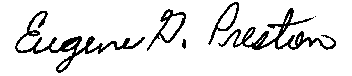 Eugene G. Preston